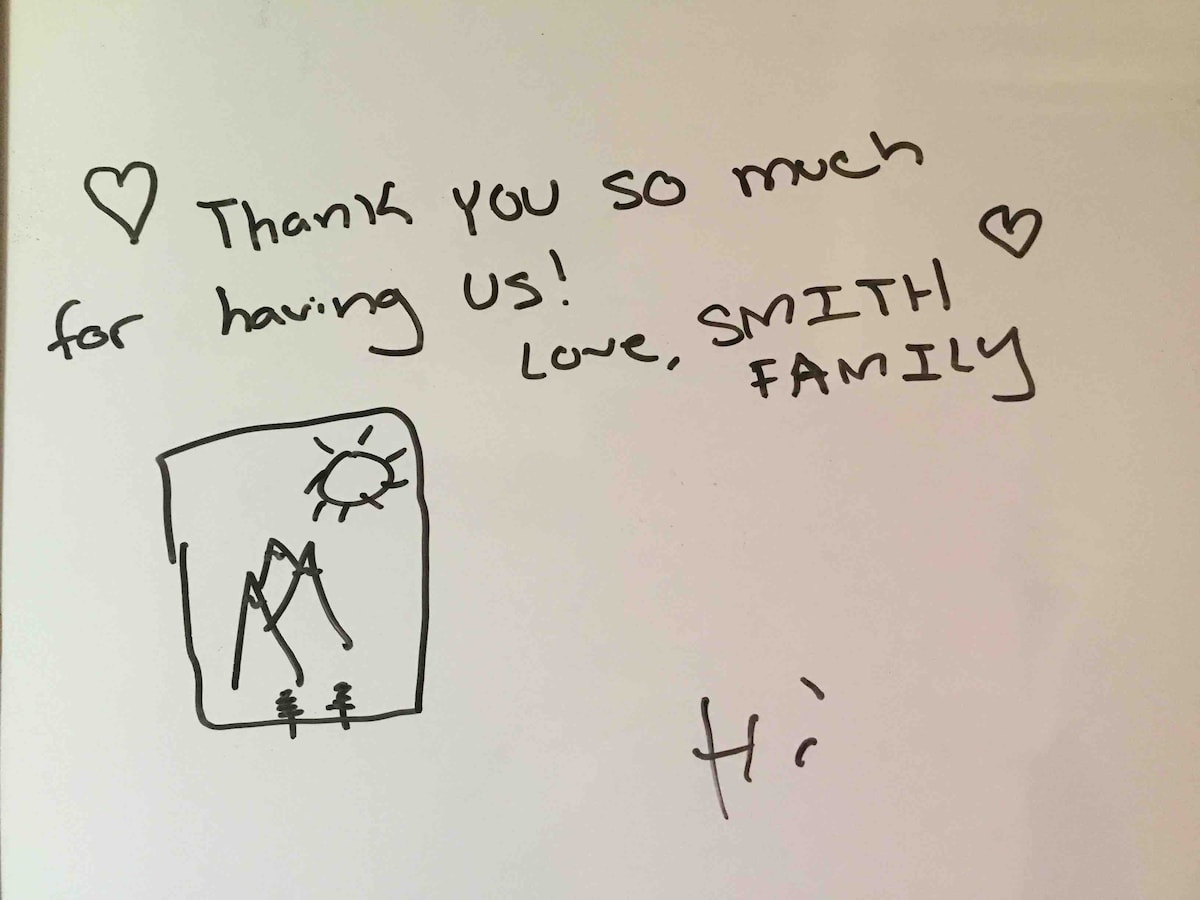 ♡ Thank you so much
for having us!
Love, SMITH ♡
FAMILY
Hi